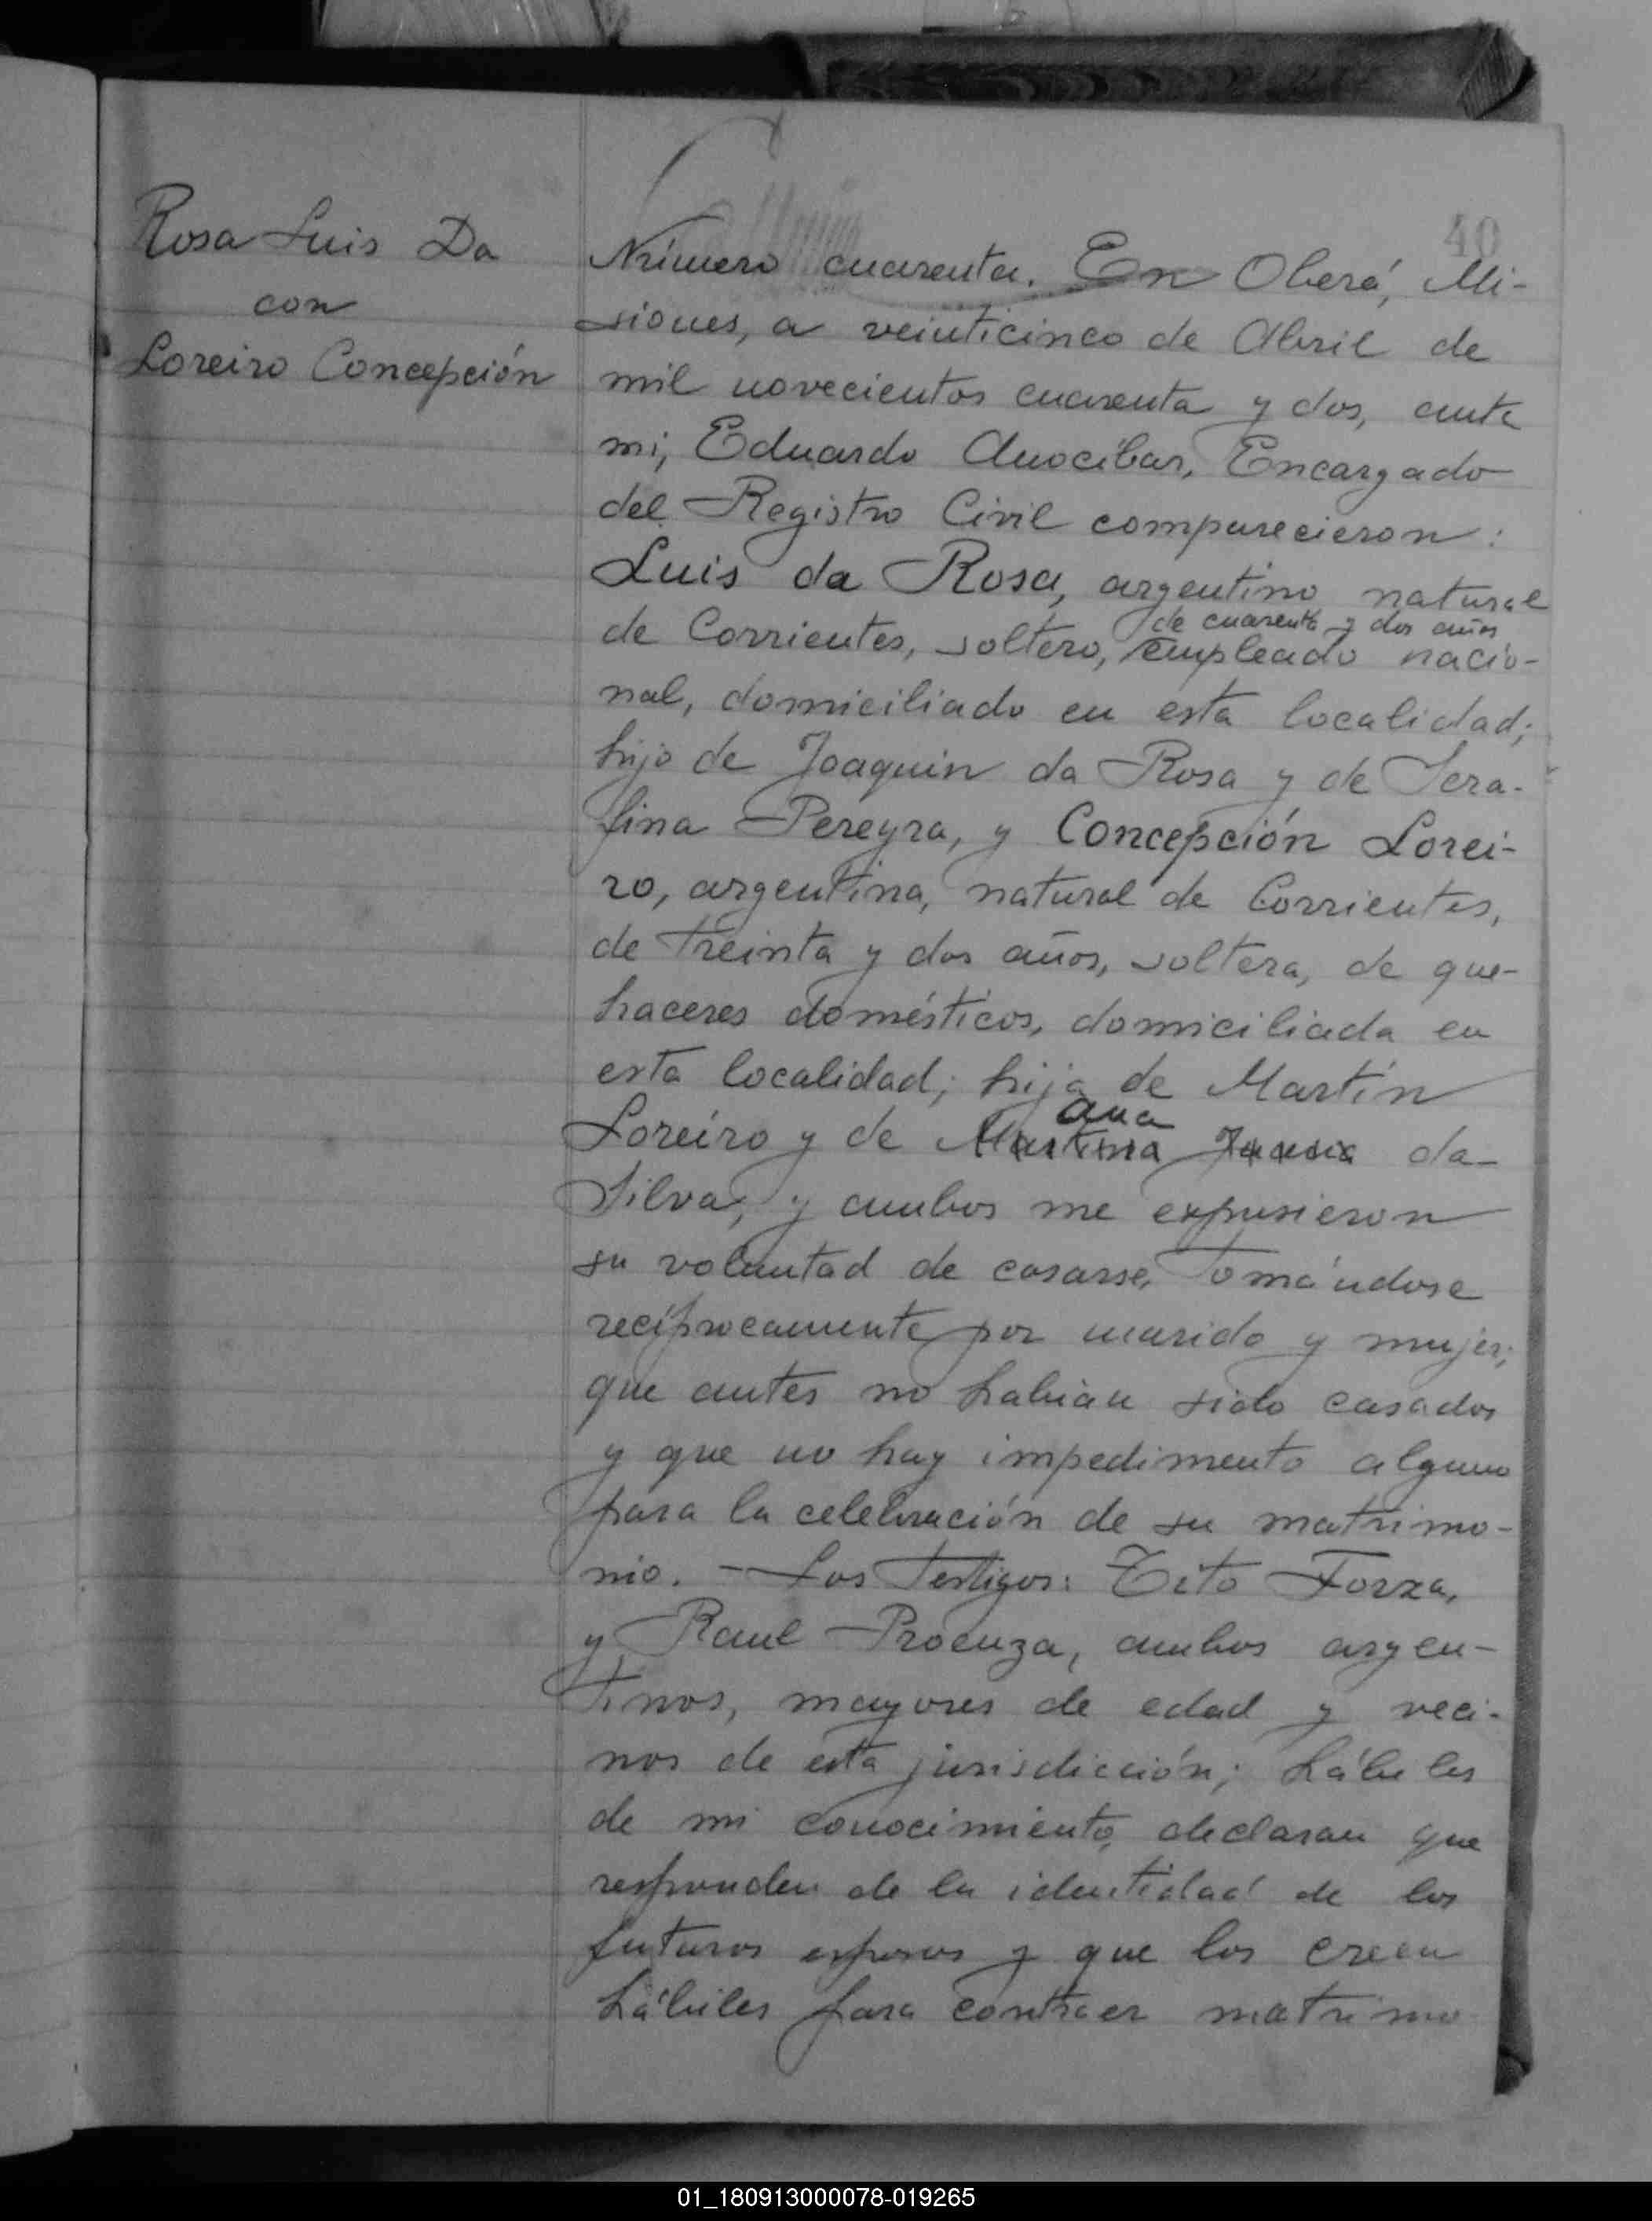 40
Rosa Luis Da
con
Loreiro Concepción
Número cuarenta. En Oberá, Mi-
siones, a veinticinco de Abril de
mil novecientos cuarenta y dos, ante
mi, Eduardo Anocíbar, Encargado
del Registro Civil comparecieron:
Luis da Rosa, argentino natural
de cuarenta y dos años
de Corrientes, soltero, empleado nacio-
nal, domiciliado en esta localidad;
hijo de Joaquin da Rosa y de Sera-
fina Pereyra, y Concepción Lorei-
ro, argentina, natural de Corrientes,
de treinta y dos años, soltera, de que-
haceres domésticos, domiciliada en
esta localidad; hija de Martín
Ana
Loreiro y de Martina da
Silva, y ambos me expusieron
su voluntad de casarse, tomándose
recíprocamente por marido y mujer;
que antes no habían sido casados
y que no hay impedimento alguno
para la celebración de su matrimo-
nio. - Los Testigos: Tito Forza,
y Raul Proenza, ambos argen-
tinos, mayores de edad y veci-
nos de esta jurisdicción; hábiles
de mi conocimiento, declaran que
responden de la identidad de los
futuros esposos y que los creen
hábiles para contraer matrimo
01_180913000078-019265